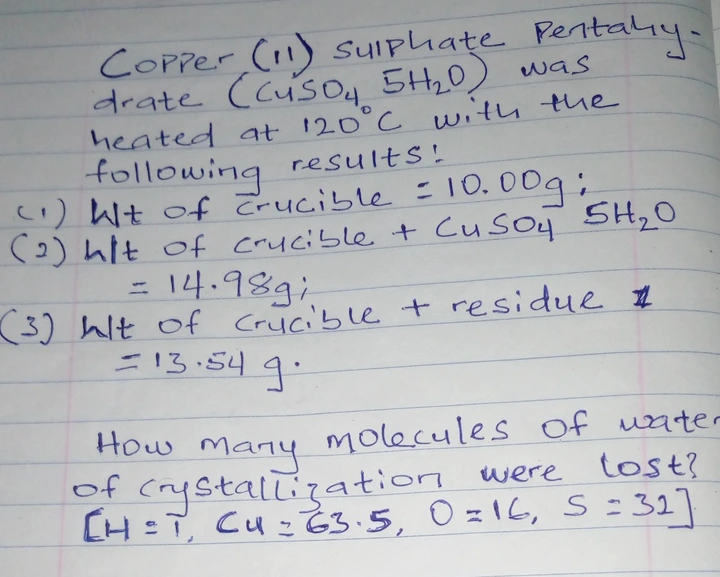 Copper (11) sulphate Pentahy-
drate (CuSO4 5H2O) was
heated at 120°C with the
following results!
(1) Wt of crucible = 10.00g;
(2) Wt of crucible + CuSO4 5H2O
= 14.98g;
(3) Wt of crucible + residue
= 13.54 g.
How many molecules of water
of crystallization were lost?
[H = 1, Cu = 63.5, O = 16, S = 32]